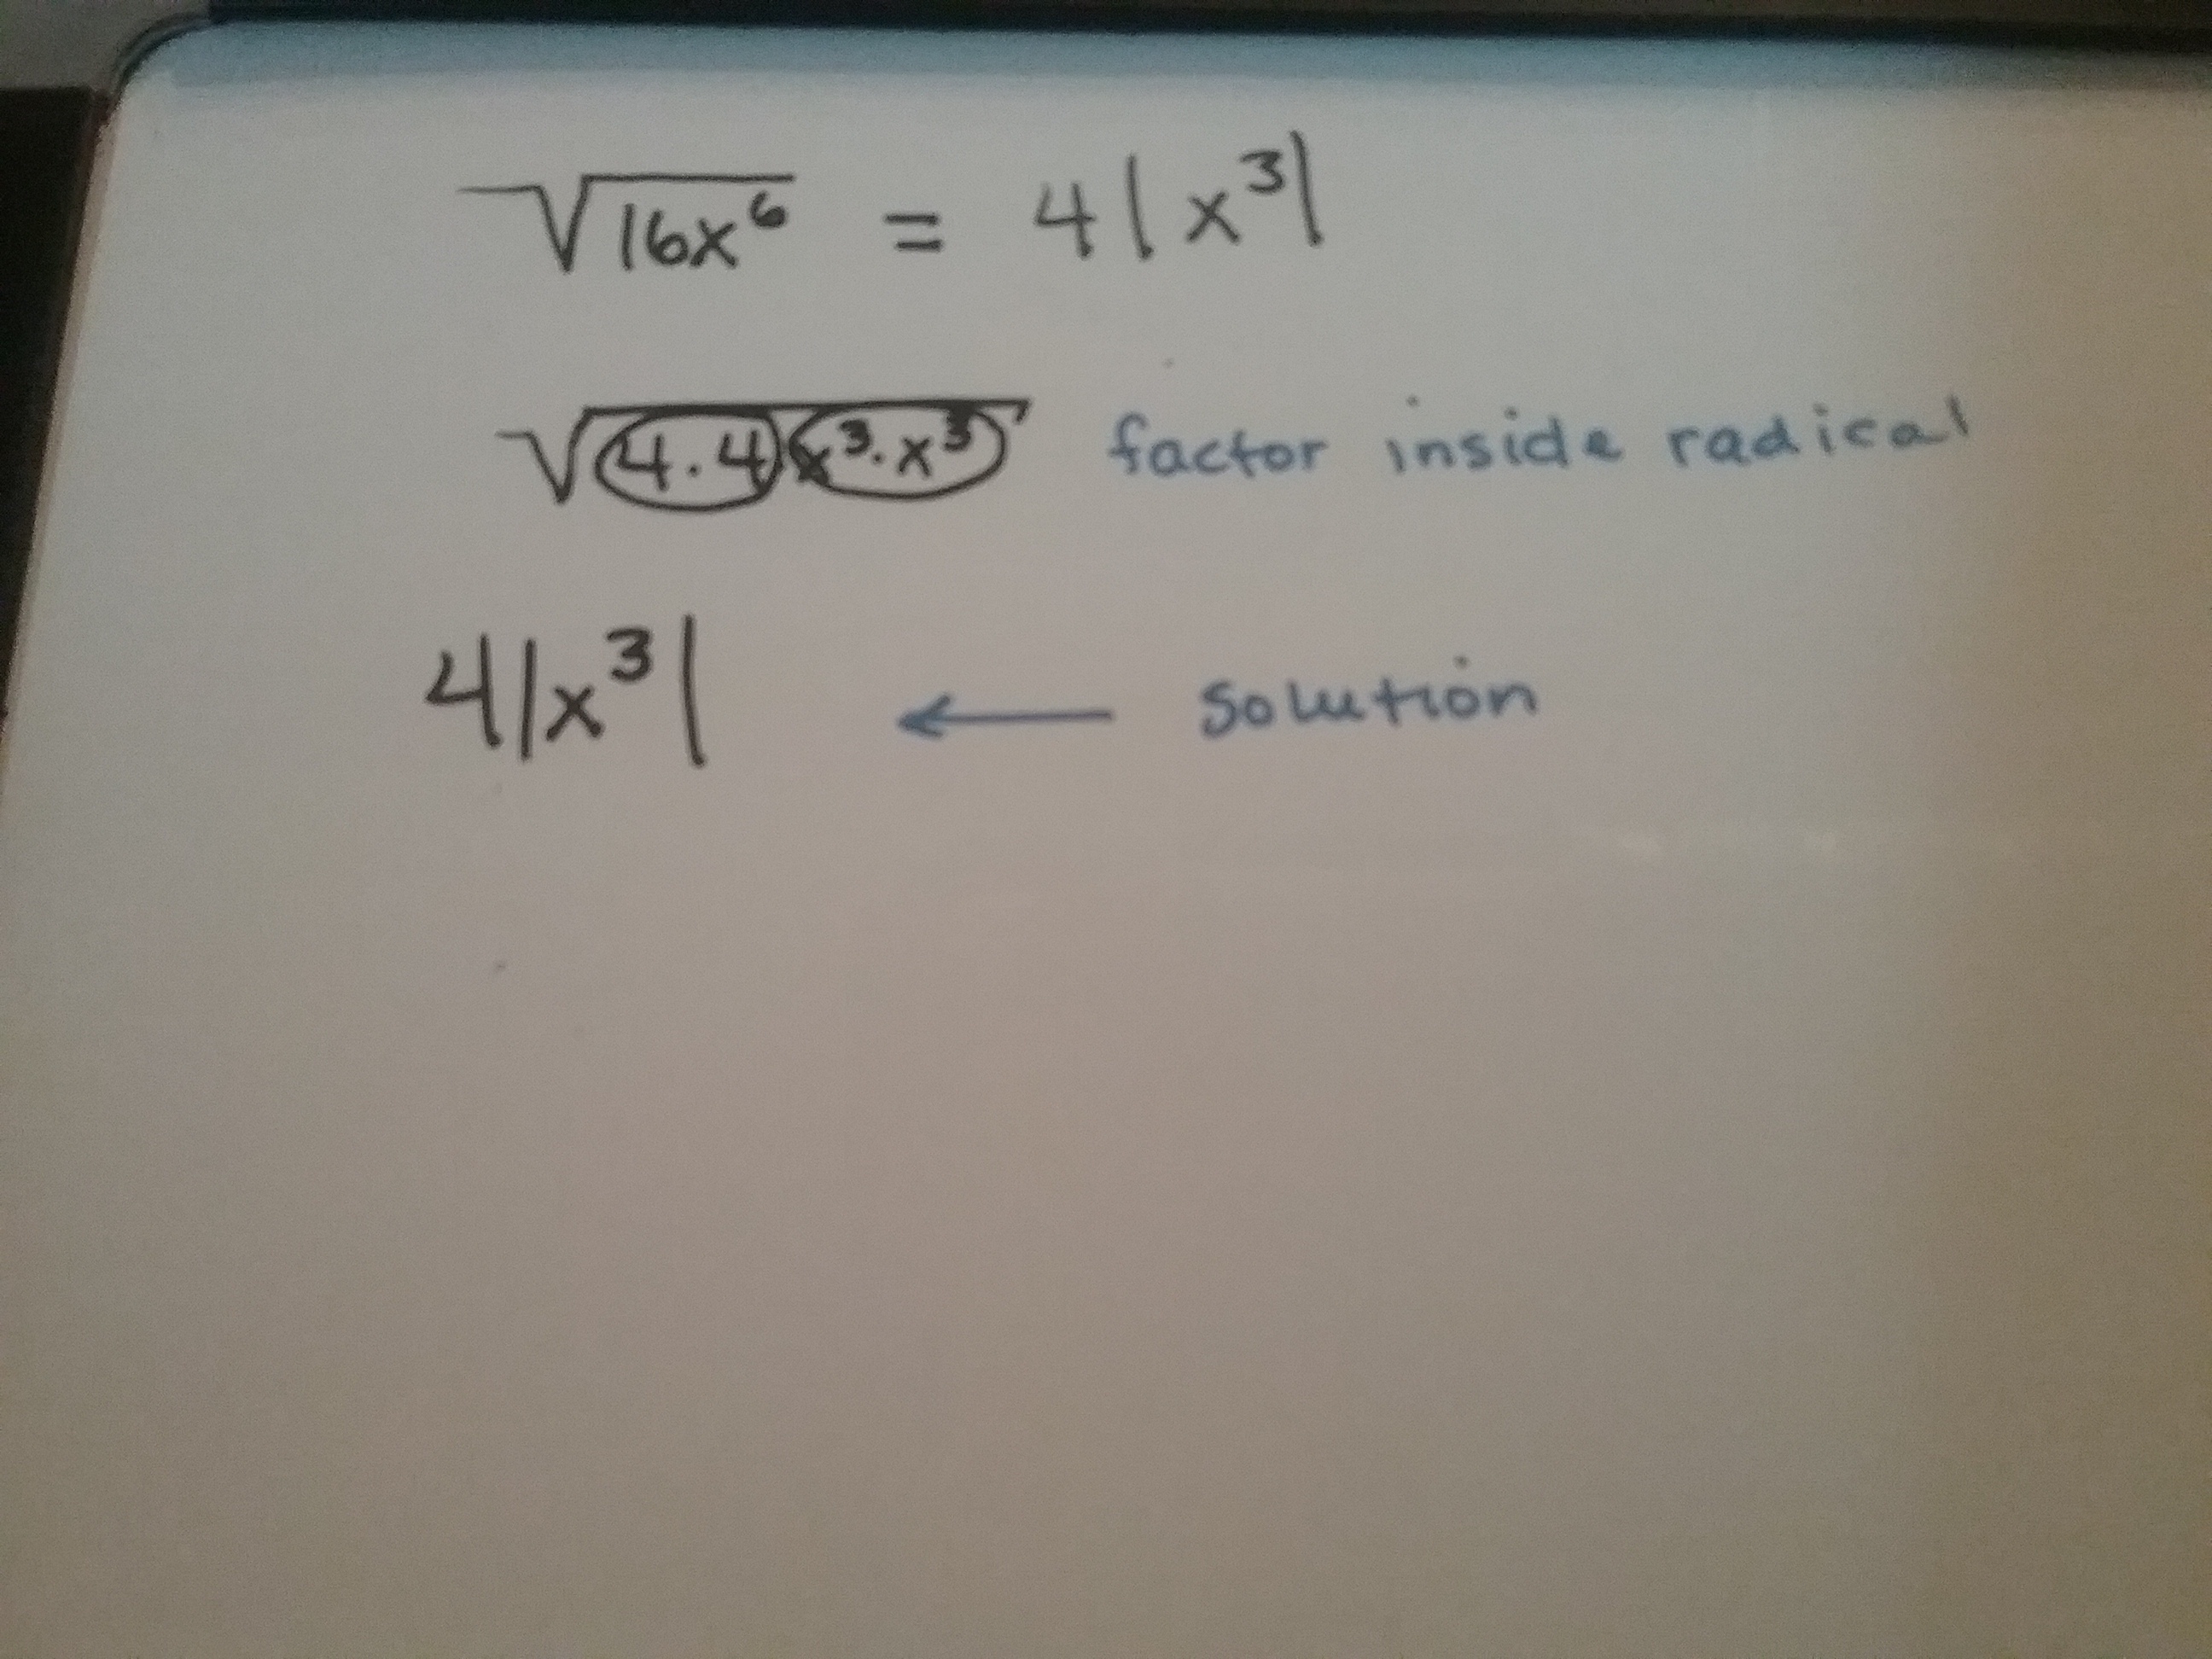 √16x⁶ = 4|x³|
√4·4 x³·x³ factor inside radical
4|x³| ← solution